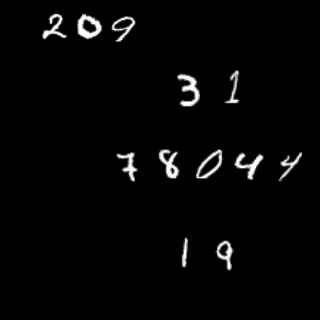 209
31
78044
19